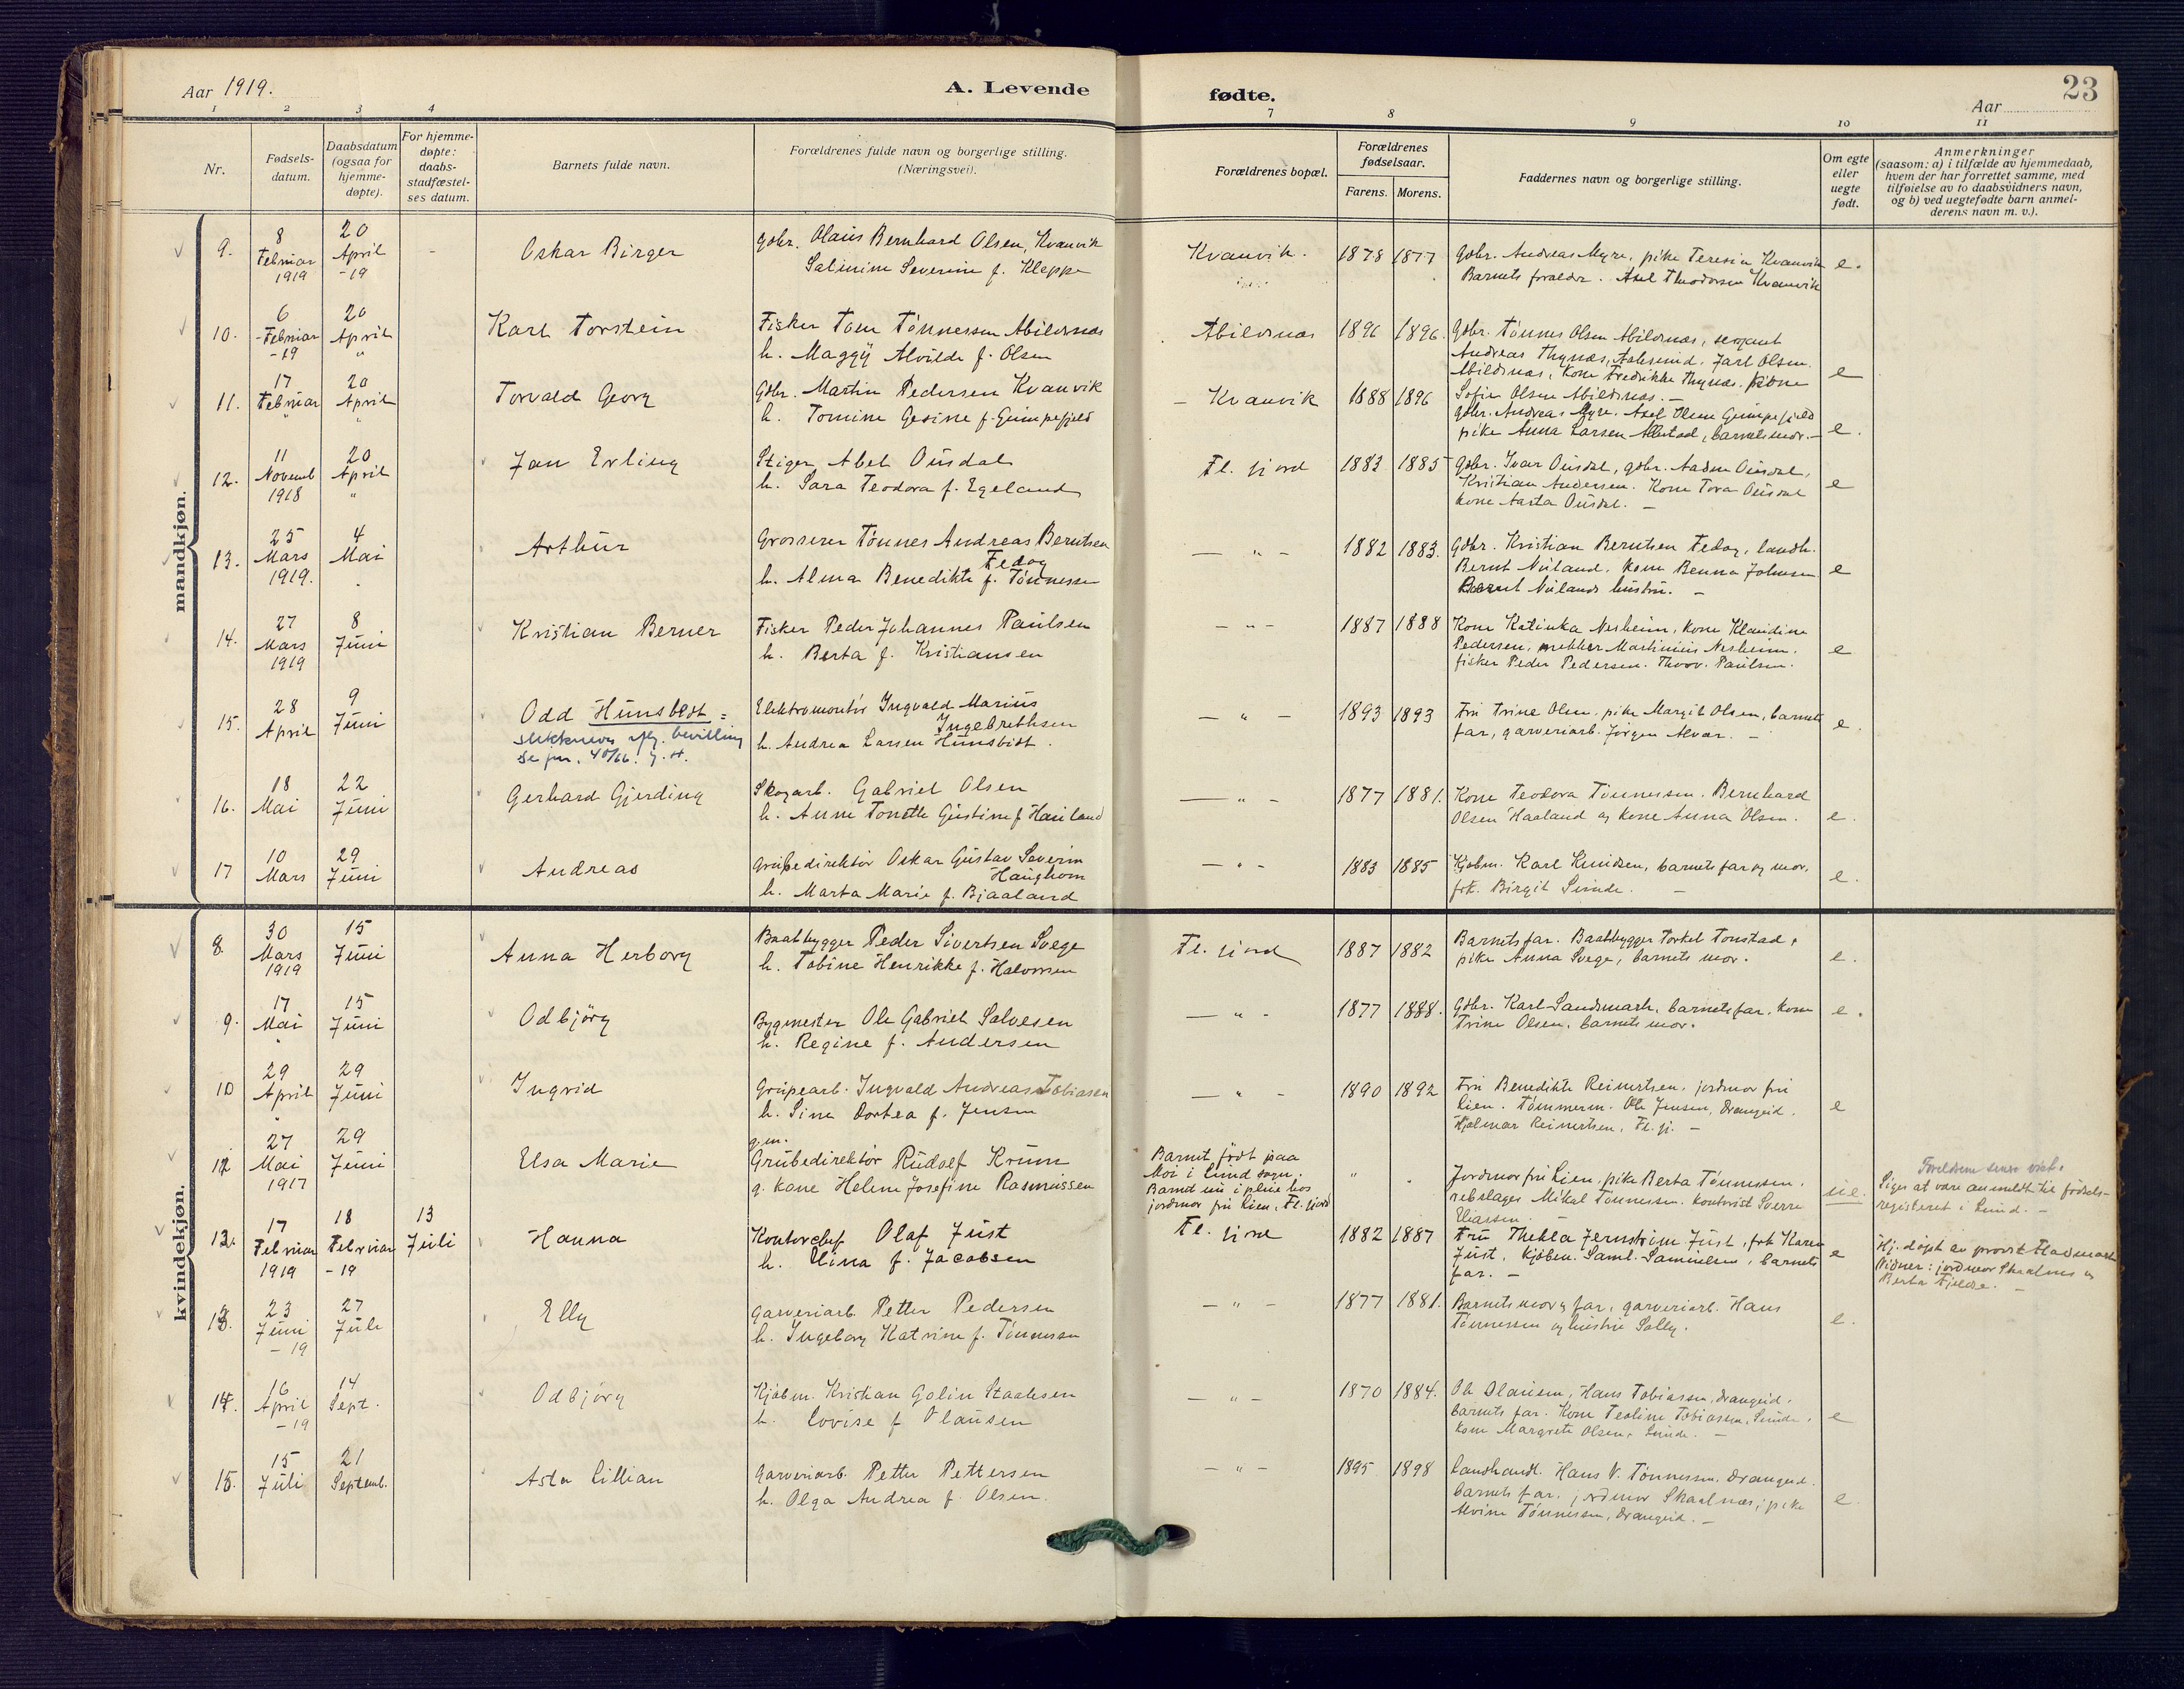 Aar 1919.
A. Levende fødte.
Aar
23
1 2 3 4 7 8 9 10 11
Nr.
Fødsels-
datum.
Daabsdatum
(ogsaa for
hjemme-
døpte).
For hjemme-
døpte:
daabs-
stadfæstel-
ses datum.
Barnets fulde navn.
Forældrenes fulde navn og borgerlige stilling.
(Næringsvei).
Forældrenes bopæl.
Forældrenes
fødselsaar.
Farens. Morens.
Faddernes navn og borgerlige stilling.
Om egte
eller
uegte
født.
Anmerkninger
(saasom: a) i tilfælde av hjemmedaab,
hvem der har forrettet samme, med
tilføielse av to daabsvidners navn,
og b) ved uegtefødte barn anmel-
derens navn m. v.).
mandkjøn.
9. 8 Februar 1919 20 April -19 - Oskar Birger
Gdbr. Olaus Bernhard Olsen, Kvanvik
Salimine Severine f. Kleppe
Kvanvik. 1878 1877
Gdbr. Andreas Myre, pike Teresia Kvanvik
Barnets forældr. Axel Theodorsen Kvanvik
e.
10. 6 Februar -19 20 April " Karl Torstein
Fisker Tom Tønnessen Abildsnæs
h. Maggy Alvilde f. Olsen
Abildsnæs 1896 1896.
Gdbr. Tønnes Olsen Abildsnæs, sergeant
Andreas Thynæs, Aalesund. Jarl Olsen
Abildsnæs, Kone Fredrikke Thynæs.
Sofie Olsen Abildsnæs. -
e
11. 17 Februar " 20 April " Torvald Georg
Gdbr. Martin Pedersen Kvanvik
h. Tomine Gesine f. Gumpefjeld
- Kvanvik 1888 1896
gdbr. Andreas Myre. Axel Olsen Gumpefjeld
pike Anna Larsen, barnets mor. -
e.
12. 11 Novemb 1918 20 April " Jan Erling
Stiger Abel Ousdal
h. Sara Teodora f. Egeland
Fl. fjord 1883 1885
Gdbr. Ivar Ousdal, gdbr. Aadne Ousdal,
Kristian Andersen. Kone Tora Ousdal
kone Aasta Ousdal. -
e
13. 25 Mars 1919. 4 Mai Arthur
Grosserer Tønnes Andreas Berntsen
Fedog
h. Alma Benedikte f. Tønnessen
— " - 1882 1883.
Gdbr. Kristian Berntsen Fedog, landh.
Bernt Niland. Kone Benna Johnsen
Bernt Nilands hustru. -
e
14. 27 Mars 1919 8 Juni Kristian Berner
Fisker Peder Johannes Paulsen
h. Berta f. Kristiansen
- " - 1887 1888
Kone Katinka Nesheim, kone Klaudine
Pedersen, Martinius Nesheim.
fisker Peder Pedersen. Thorv. Paulsen.
e
15. 28 April 9 Juni Odd Hunsbedt =
slektsnavn iflg. bevilling
Se jnr. 40/66. G. H.
Elektromontør Ingvald Marius
Ingebrethsen
h. Andrea Larsen Hunsbedt.
— " - 1893 1893
Fru Trine Olsen, pike Margit Olsen, barnets
far, garveriarb. Jørgen Alvar. -
e.
16. 18 Mai 22 Juni Gerhard Gjerding
Skogarb. Gabriel Olsen
h. Anne Tonette Gustine f Hauland
— " - 1877 1881.
Kone Teodora Tønnessen. Bernhard
Olsen Haaland og kone Anna Olsen.
e.
17 10 Mars 29 Juni Andreas
Grubedirektør Oskar Gustav Severin
Haughom
h. Marta Marie f. Bjaaland
— " - 1883 1885
Kjøbm. Karl Knudsen, barnets far og mor,
frk. Birgit Sunde. -
e.
kvindekjøn.
8. 30 Mars 1919 15 Juni Anna Herborg
Baatbygger Peder Sivertsen Svege
h. Tobine Henrikke f. Halvorsen
Fl. fjord 1887 1882
Barnets far. Baatbygger Torkel Tonstad,
pike Anna Svege, barnets mor.
e.
9. 17 Mai " 15 Juni Odbjörg
Bygmester Ole Gabriel Salvesen
h. Regine f. Andersen
— " - 1877 1888.
Gdbr. Karl Sandsmark, barnets far, kone
Trine Olsen, barnets mor.
e.
10 29 April " 29 Juni Ingrid
Grupearb. Ingvald Andreas Tobiasen
h. Sina Dortea f. Jensen
— " - 1890 1892
Fru Benedikte Reinertsen, jordmor fru
Lien. Tømmerm. Ole Jensen, Drangeid.
Hjalmar Reinertsen, Fl. fj. -
e
12 27 Mai 1917 29 Juni Elsa Marie
g.m.
Grubedirektør Rudolf Krumm
g. kone Helene Josefine Rasmussen
Barnet født paa
Moi i Lund sogn.
Barnet nu i pleie hos
jordmor fru Lien, Fl. fjord
" "
Jordmor fru Lien, pike Berta Tønnessen.
rebslager Mikal Tønnessen. Kontorist Sverre
Eliassen.
u.e.
Foreldrene senere viet.
Siges at være anmeldt til fødsels-
registeret i Lund. -
12. 17 Februar 1919 18 Februar -19 13 Juli Hanna
Kontorchef Olaf Just
h. Elina f. Jacobsen
Fl. fjord 1882 1887
Fru Thekla Jernstrøm Just, frk Karen
Just. Kjøbm. Saml. Samuelsen, barnets
far. -
e
Hj. døpt av provst Fladmark
Vidner: jordmor Skaalnes og
Berta Fjeldse. -
13. 23 Juni -19 27 Juli Elly
garveriarb. Petter Pedersen
h. Ingeborg Katrine f. Tønnessen
— " - 1877 1881.
Barnets mor og far, garveriarb. Hans
Tønnessen og hustru Sally.
e.
14. 16 April -19 14 Sept. Odbjörg
Kjøbm. Kristian Golin Staalesen
h. Lovise f Olausen
— " - 1870 1884.
Ole Olausen, Hans Tobiassen, Drangeid.
barnets far. Kone Teoline Tobiassen, Sunde.
kone Margrete Olsen, Sunde. -
e
15. 15 Juli 21 Septemb. Asta Lillian
Garveriarb. Petter Pettersen
h. Olga Andrea f. Olsen.
— " - 1895 1898
Landhandl. Hans V. Tønnessen, Drangeid.
barnets far. jordmor Skaalnæs, pike
Alvine Tønnessen, Drangeid. -
e.